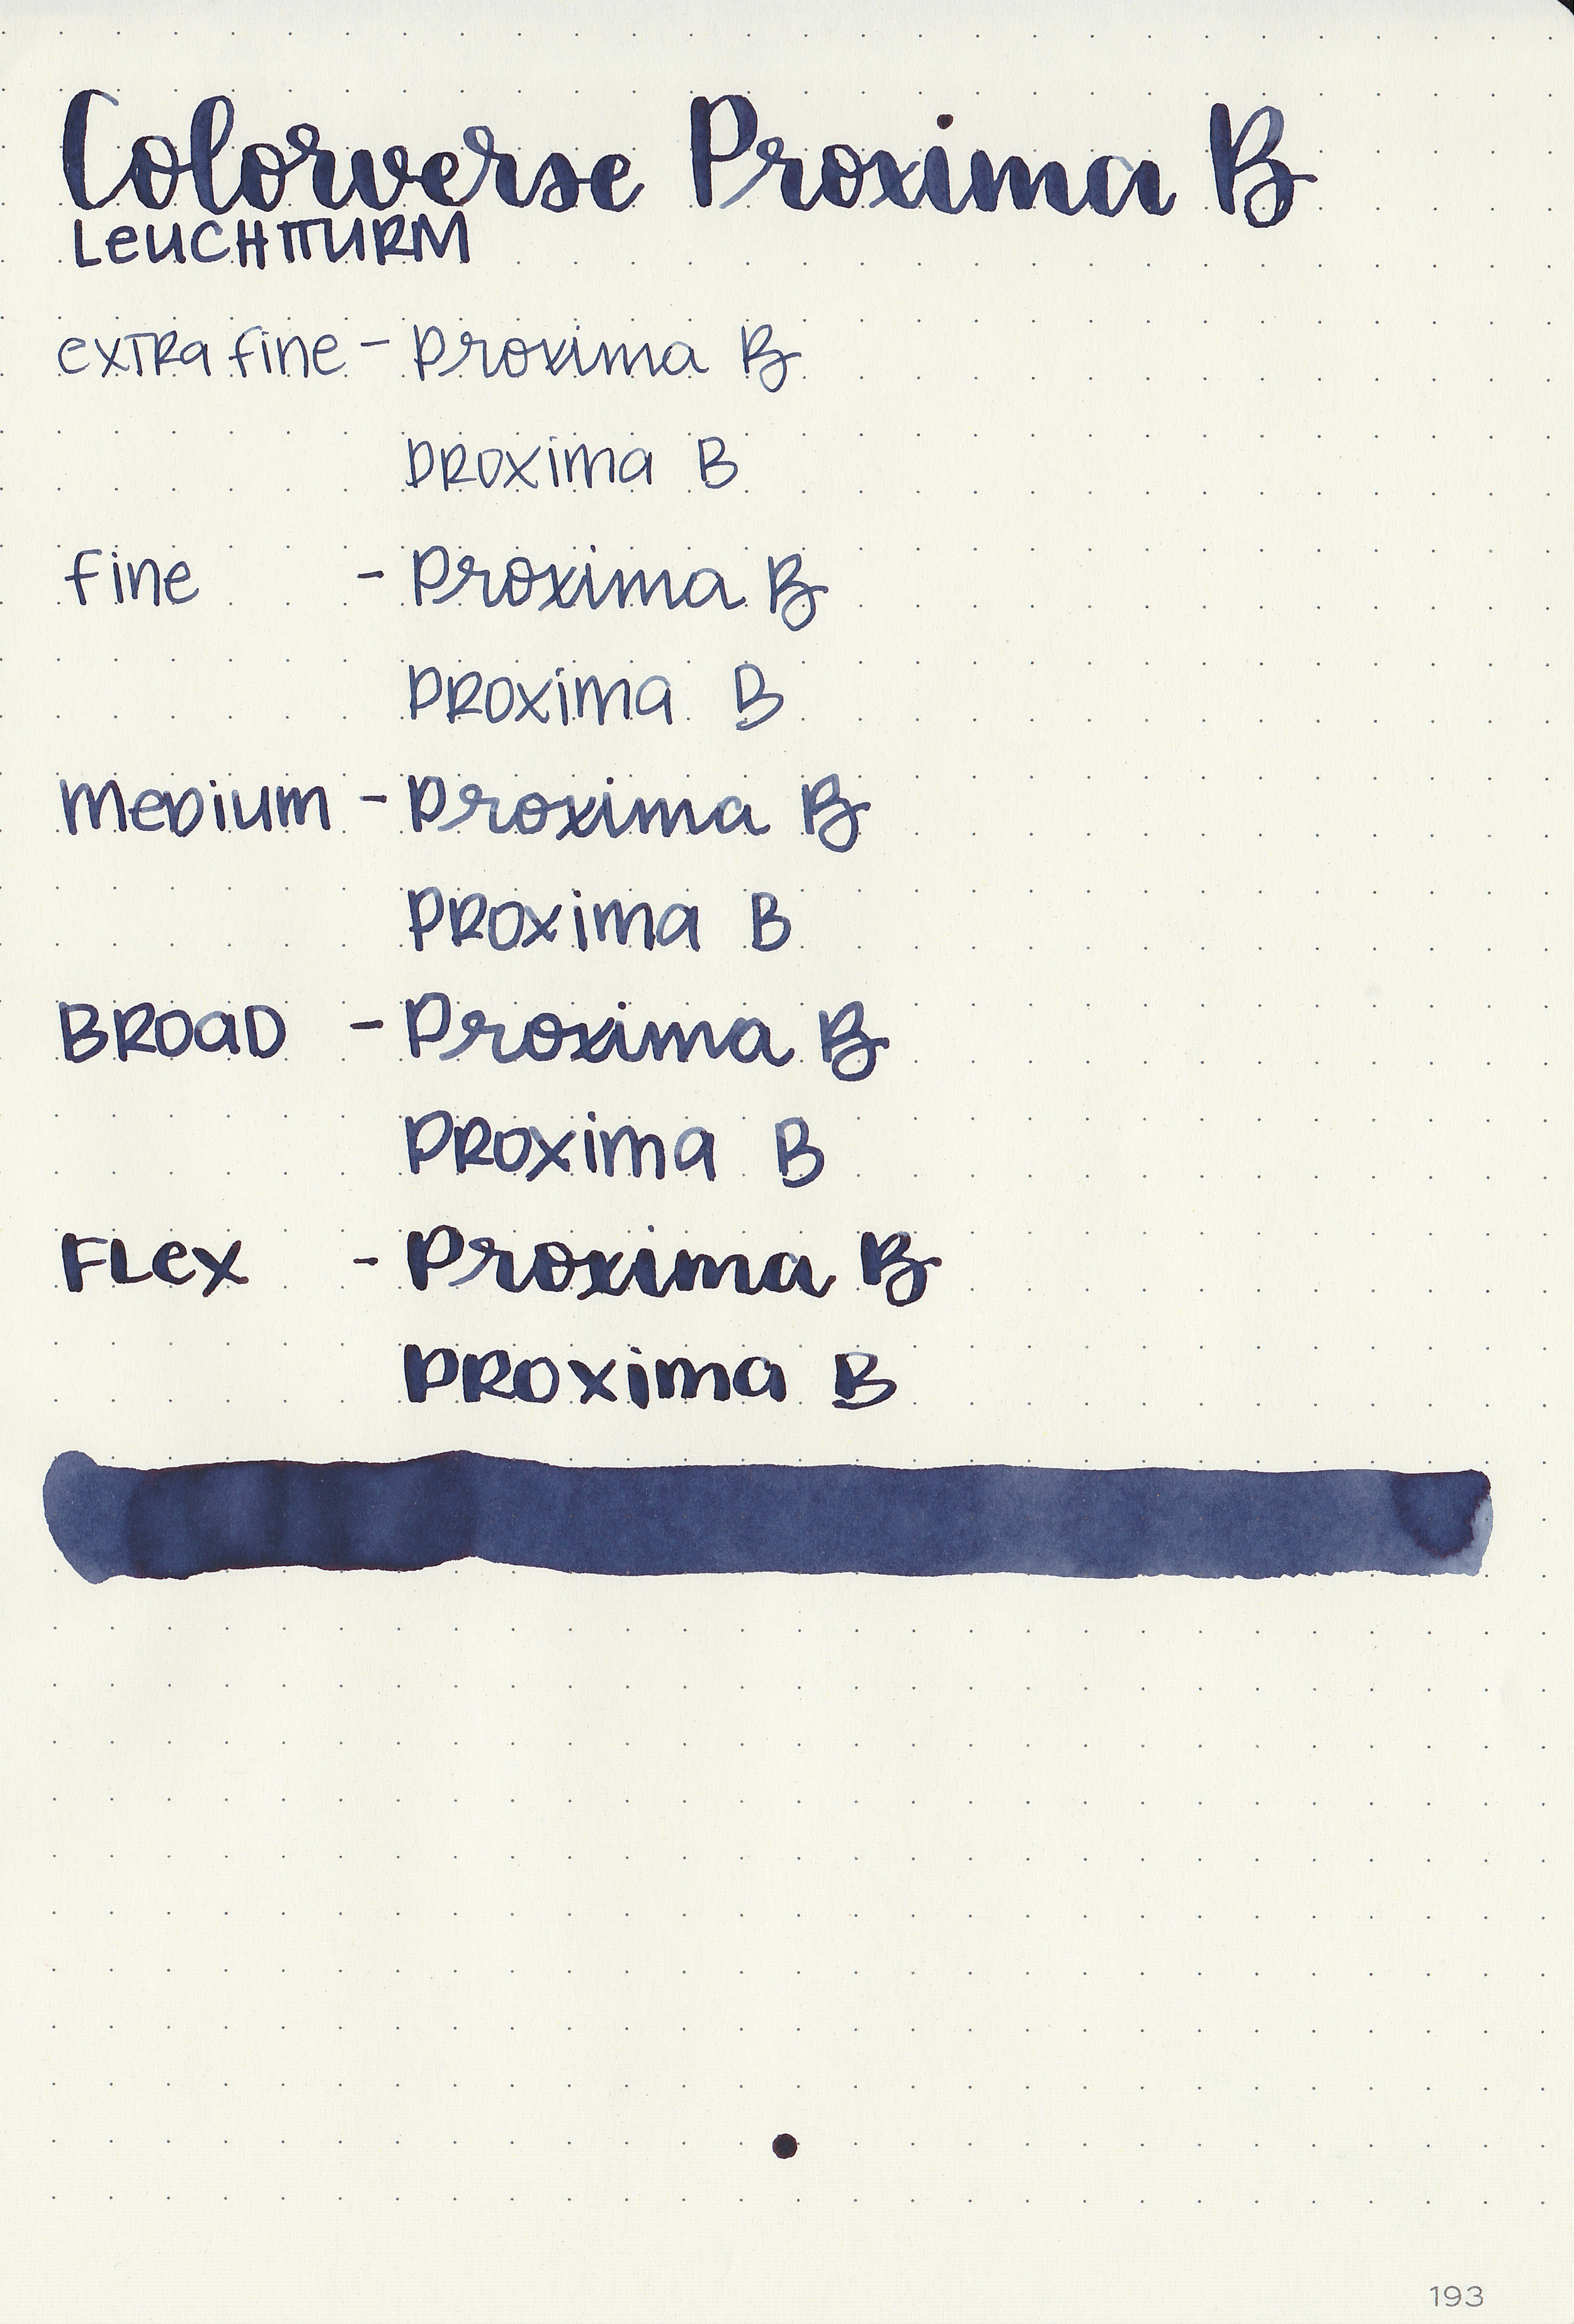 Colorverse Proxima B
LeUCHTTURM
exTRa fine - Proxima B
PROXima B
fine - Proxima B
PROXima B
MeDium - Proxima B
PROXima B
BROaD - Proxima B
PROXima B
FLex - Proxima B
PROXima B
193